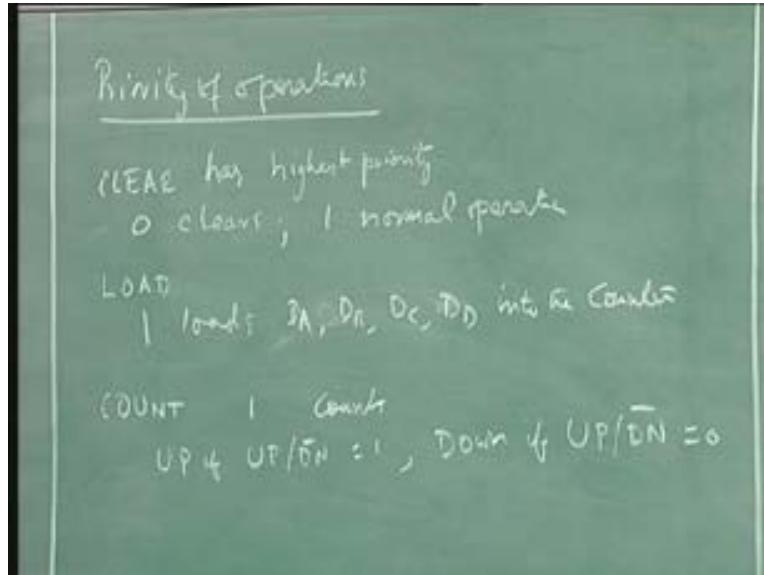 Priority of operations
CLEAR has highest priority
0 clears; 1 normal operation
LOAD
1 loads DA, DB, DC, DD into the Counter
COUNT 1 Counts
UP if UP/D̅N̅ = 1, Down if UP/D̅N̅ = 0